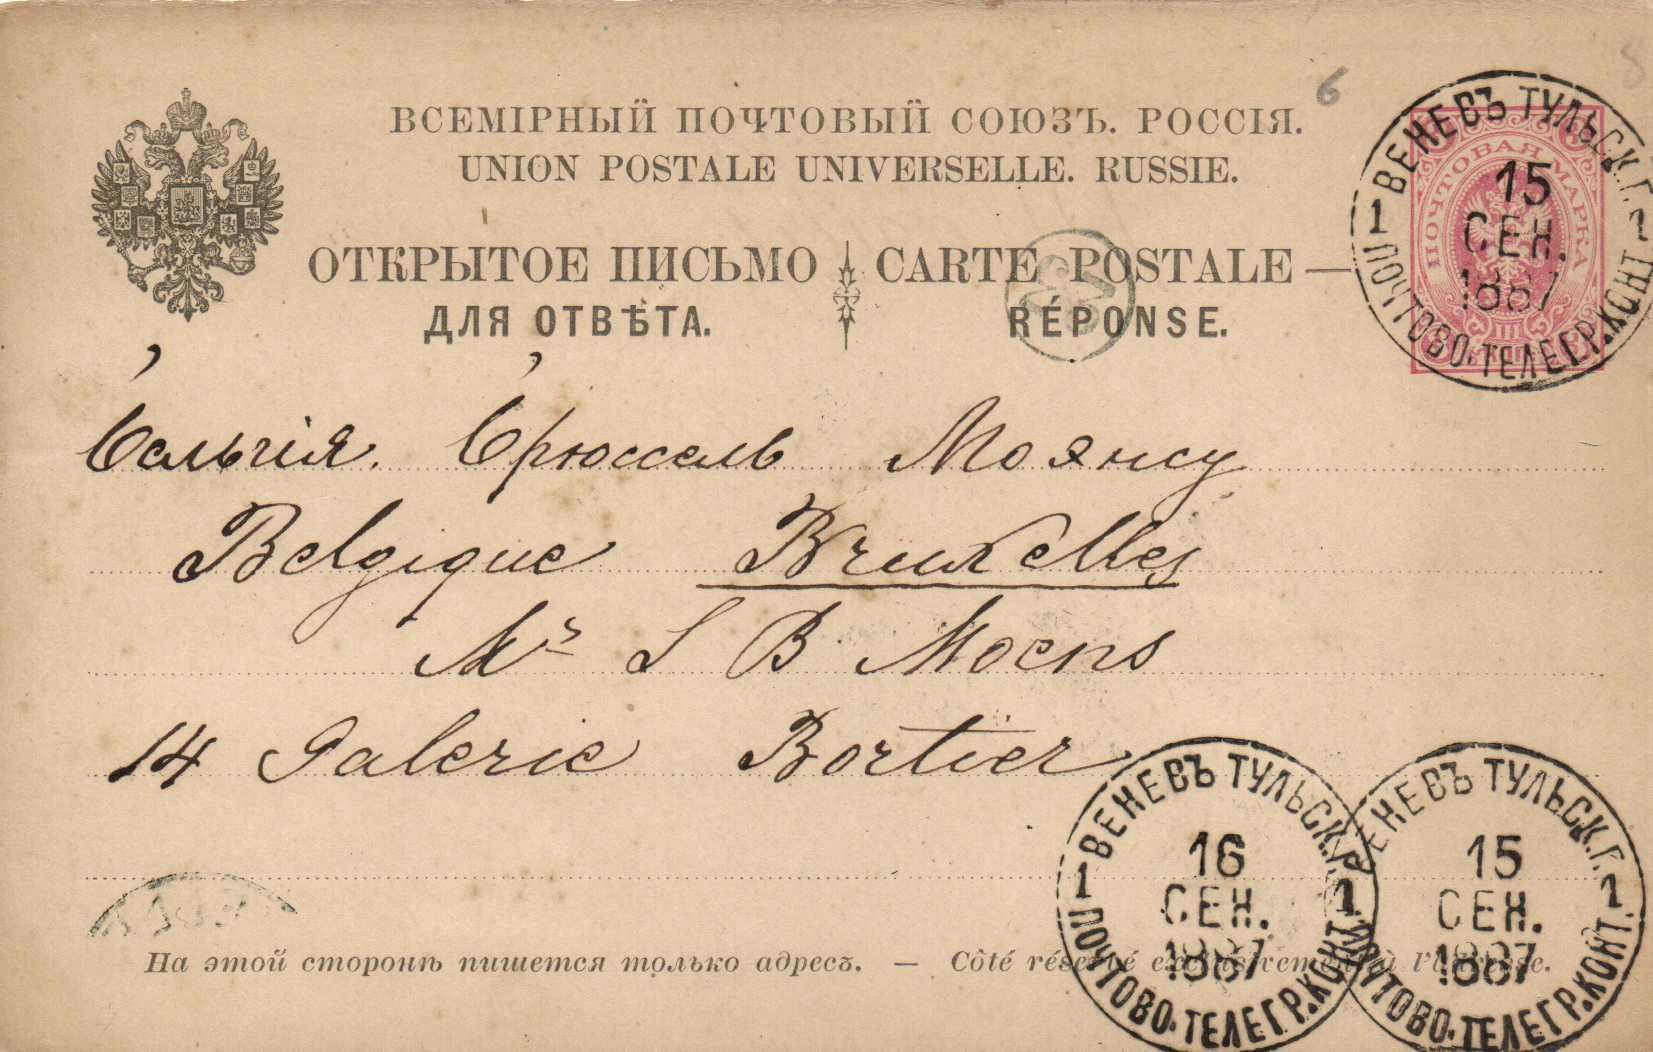 ВСЕМІРНЫЙ ПОЧТОВЫЙ СОЮЗЪ. РОССІЯ.
UNION POSTALE UNIVERSELLE. RUSSIE.
ОТКРЫТОЕ ПИСЬМО CARTE POSTALE
ДЛЯ ОТВѢТА. RÉPONSE.
6
ПОЧТОВАЯ МАРКА
ВЕНЕВЪ ТУЛЬСК.Г.
1 15 1
СЕН.
1887
ПОЧТОВО.ТЕЛЕГР.КОНТ.
Бельгія. Брюссель Моянсу
Belgique Bruxelles
Mr L B Moens
14 Galerie Bortier
ВЕНЕВЪ ТУЛЬСК.Г.
1 16 1
СЕН.
1887
ПОЧТОВО.ТЕЛЕГР.КОНТ.
ВЕНЕВЪ ТУЛЬСК.Г.
15 1
СЕН.
1887
ПОЧТОВО.ТЕЛЕГР.КОНТ.
На этой сторонѣ пишется только адресъ. — Côté réservé exclusivement à l'adresse.